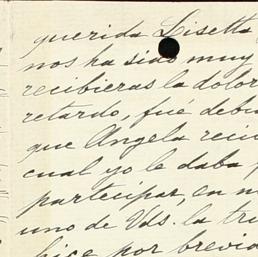 querida Lisetta
nos ha sido muy
recibieras la dolor
retardo, fué debi
que Angela reci
cual yo le daba
participar, en
uno de Vds. la tri
hice por brevia